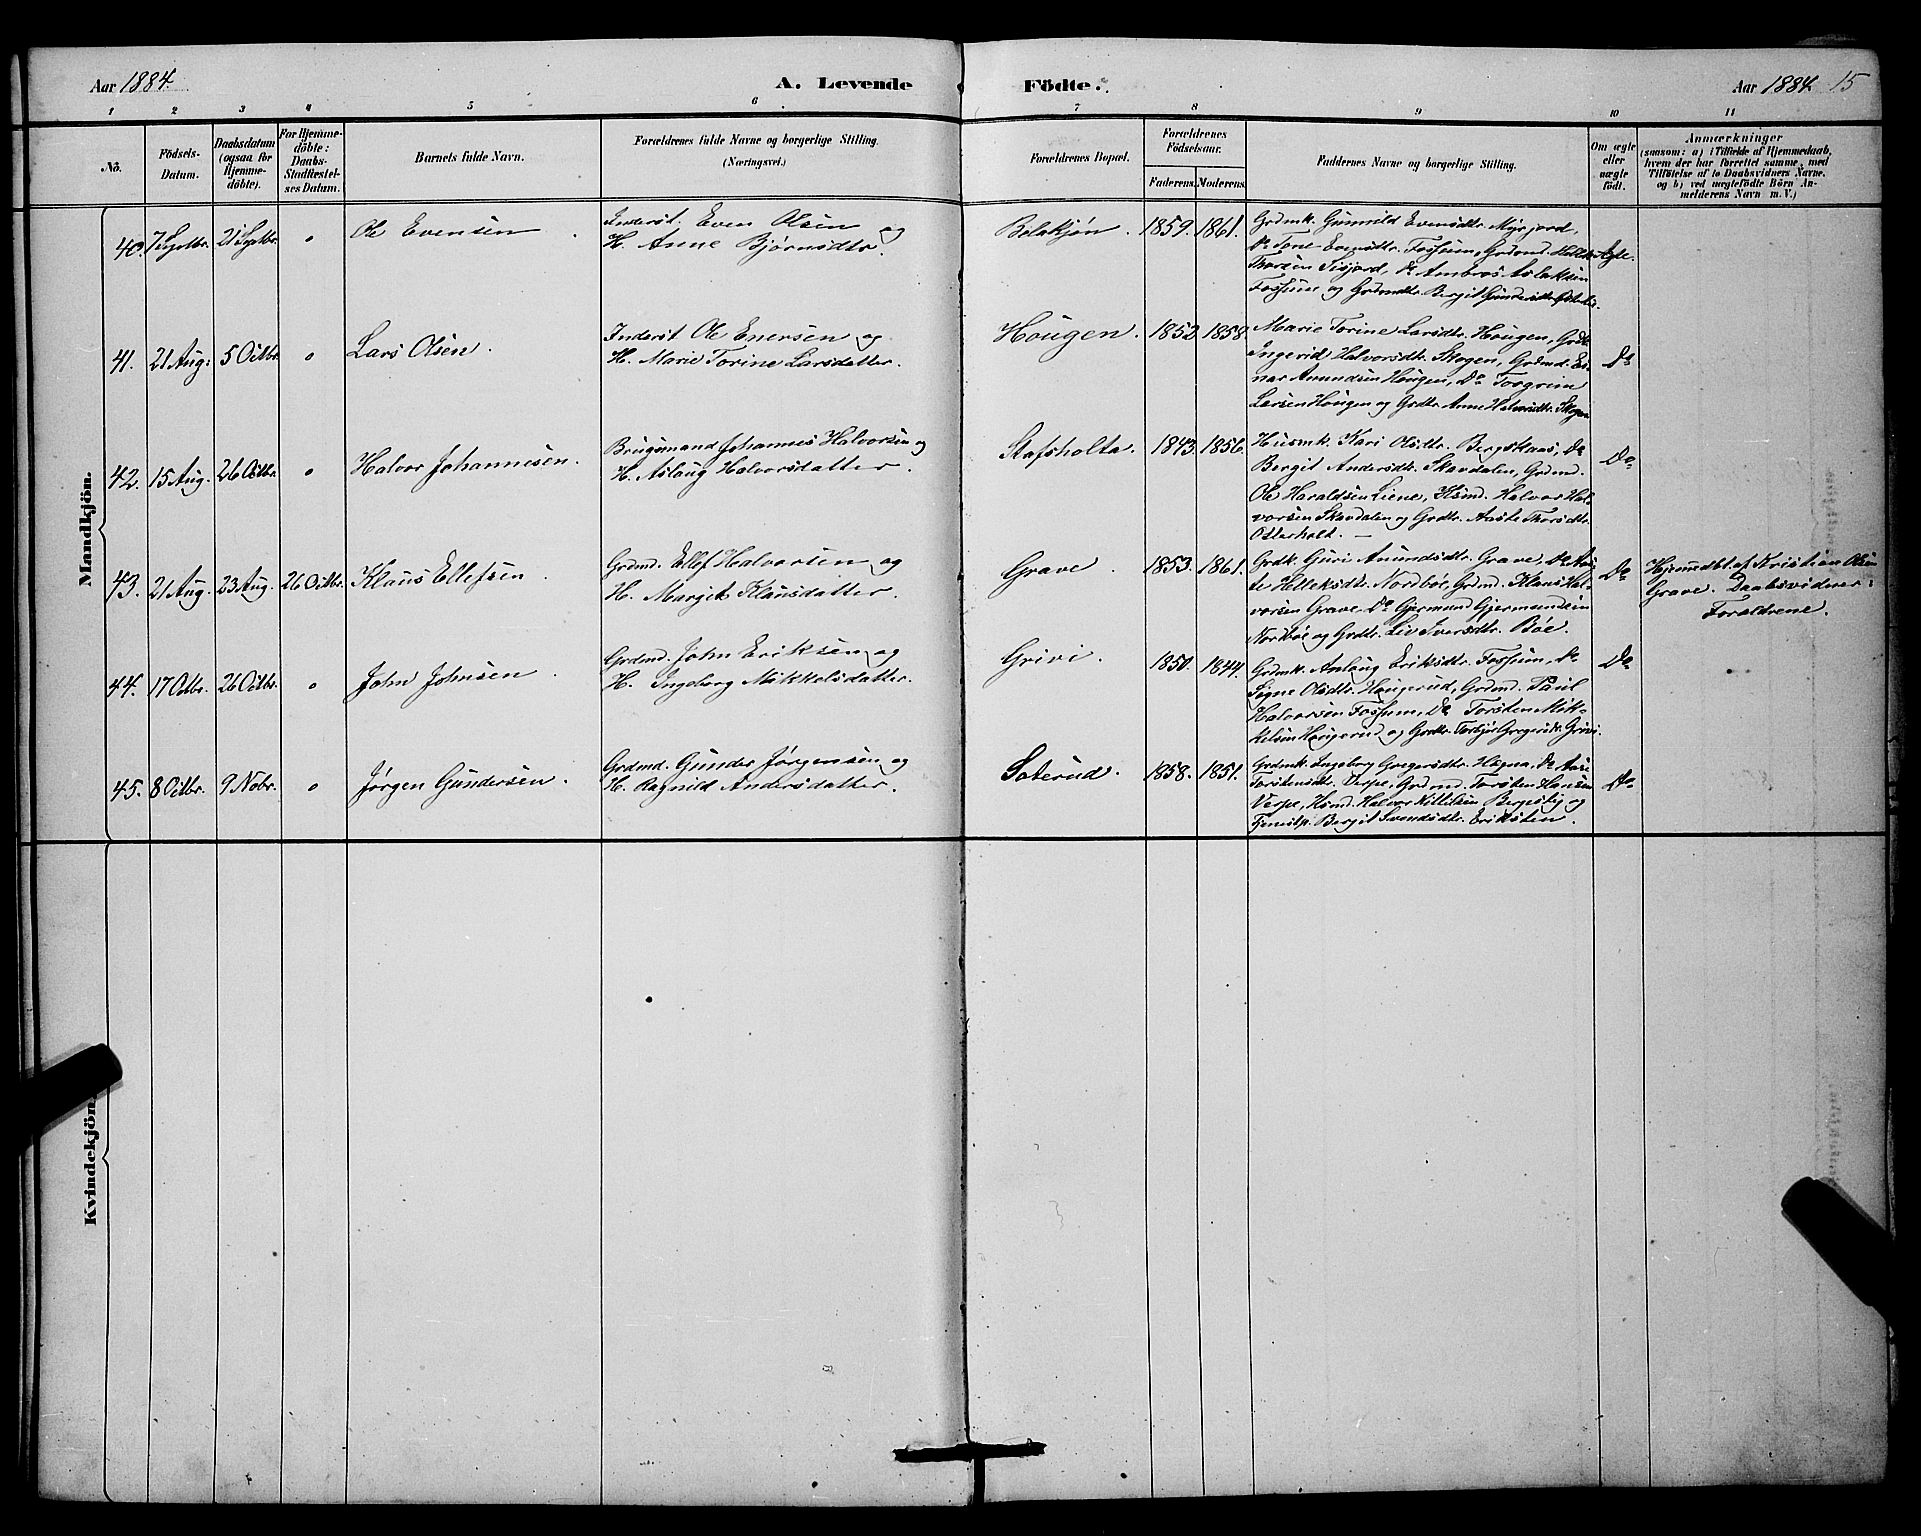 Aar 1884. A. Levende Födte. Aar 1884. 15
1 2 3 4 5 6 7 8 9 10 11
Nô.
Födsels-
Datum.
Daabsdatum
(ogsaa for
Hjemme-
döbte).
For Hjemme-
döbte:
Daabs-
Stadfæstel-
ses Datum.
Barnets fulde Navn.
Forældrenes fulde Navne og borgerlige Stilling.
(Næringsvei.)
Forældrenes Bopæl.
Forældrenes
Födselsaar.
Faderens. Moderens.
Faddernes Navne og borgerlige Stilling.
Om ægte
eller
uægte
födt.
Anmærkninger
(saasom: a) i Tilfælde af Hjemmedaab,
hvem der har forrettet samme, med
Tilföielse af to Daabsvidners Navne,
og b) ved uægtefödte Börn An-
melderens Navn m. V.)
Mandkjön.
40. 7 Septbr. 21 Septbr. o Ole Evensen.
Inderst. Even Olsen og
H. Anne Bjørnsdtr.
Bolakjøn. 1859. 1861.
Grdmk. Gunnild Evensdtr. Myrjord,
Do Tone Evensdtr. Fossum, Grdmd. Hellek
Thorsen Sisjord, Do Ambros Aslaksen
Fossum og Grdmdtr. Bergit Gundersdtr.
Ægte.
41. 21 Aug. 5 Octbr. o Lars Olsen.
Inderst Ole Enersen og
H. Marie Torine Larsdatter.
Hougen. 1852 1858.
Marie Torine Larsdtr. Hougen, Grdk.
Ingerid Halvorsdtr. Skogen, Grdmd. Ei-
nar Amundsen Hougen, Do Torgrim
Larsen Hougen og Grdtr. Anne Halvorsdtr. Skogen
Do
42. 15 Aug. 26 Octbr. o Halvor Johannesen.
Brugsmand Johannes Halvorsen og
H. Aslaug Halvorsdatter.
Stafsholta. 1843. 1856.
Husmk. Kari Olsdtr. Bergskaas, Do
Bergit Andersdtr. Skavdalen, Grdmd.
Ole Haraldsen Liene, Hsmd. Halvor Hal-
vorsen Skavdalen og Grdtr. Aaste Thorsdtr.
Osterholt. —
Do
43. 21 Aug. 23 Aug. 26 Octbr. Klaus Ellefsen.
Grdmd. Ellef Halvorsen og
H. Margit Klausdatter.
Grave. 1853. 1861.
Grdk. Guri Amundsdtr. Grave, Do Aas-
te Helleksdtr. Nordbøe, Grdmd. Klaus Hal-
vorsen Grave, Do Gjermund Gjermundsen
Nordbøe og Grdtr. Liv Iversdtr. Bøe.
Do
Hjemmedbt af Kristian Olsen
Grave. Daabsvidner:
Forældrene.
44. 17 Octbr. 26 Octbr. o John Johnsen.
Grdmd. John Eriksen og
H. Ingeborg Mikkelsdatter.
Grivi. 1850. 1844.
Grdmk. Anlaug Eriksdtr. Fossum, Do
Signe Olsdtr. Haugerud, Grdmd.
Halvorsen Fossum, Do Torsten Mik-
kelsen Haugerud og Grdtr. Torbjør Gregersdtr. Grivi.
Do
45. 8 Octbr. 9 Nobr. o Jørgen Gundersen.
Grdmd. Gunder Jørgensen og
H. Ragnild Andersdatter.
Soterud. 1858. 1851.
Grdmk. Ingeborg Gregersdtr. Hegna, Do Aase
Torstensdtr. Verpe, Grdmd. Torsten Hansen
Verpe, Hsmd. Halvor Kittilsen Bergestig og
Tjenestp. Bergit Svendsdtr. Eriksten.
Do
Kvindekjön.